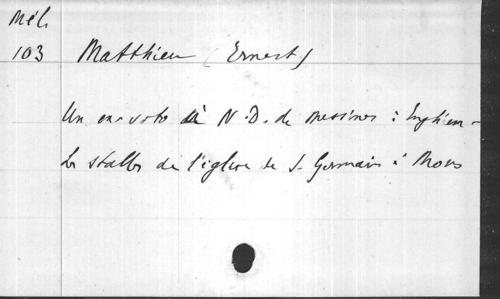 Mél.
103 Matthieu (Ernest)
Un ex-voto à N.D. de Messines à Enghien -
Les stalles de l'église de S. Germain à Mons